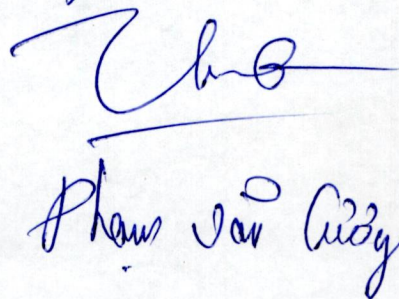 Phạm Văn Cường